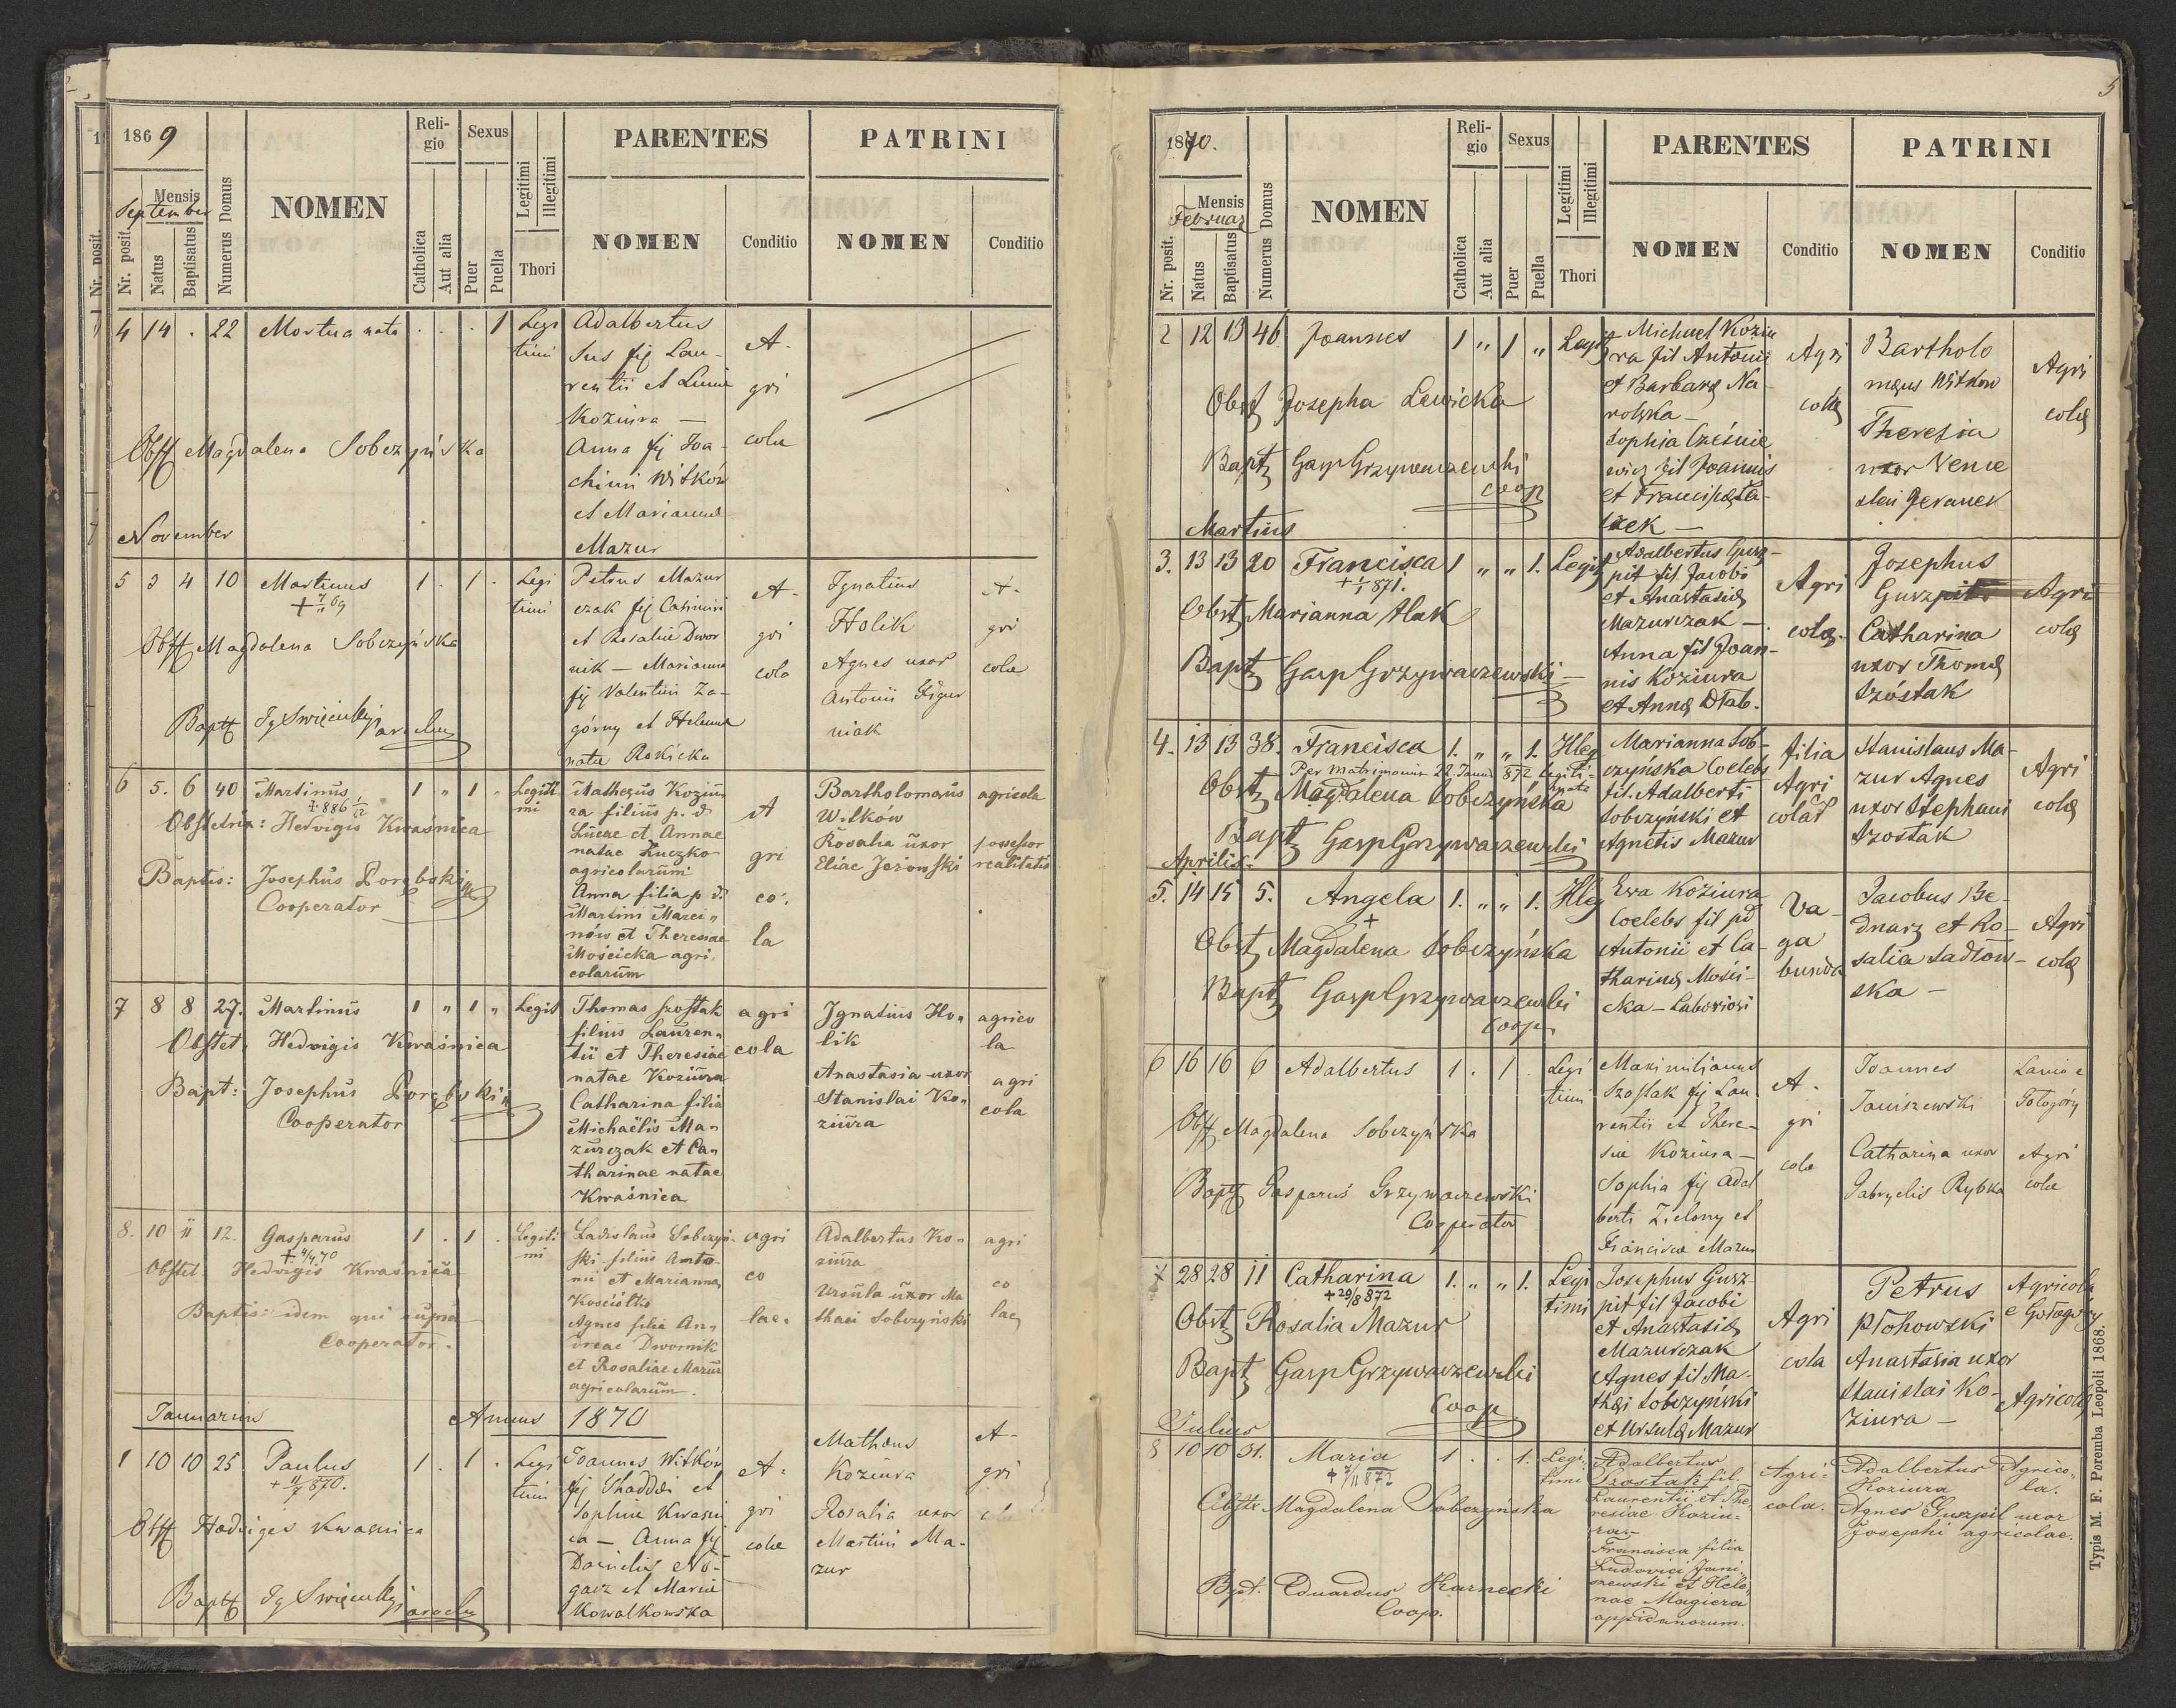 1869
Mensis
September
Nr. posit.
Natus
Baptisatus
Numerus Domus
NOMEN
Religio
Catholica
Aut alia
Sexus
Puer
Puella
Legitimi
Illegitimi
Thori
PARENTES
NOMEN
Conditio
PATRINI
NOMEN
Conditio
4 14 . 22 Mortua nata . . . 1 Legi
timi
Adalbertus
Sus fij Lau-
rentii et
Koziura —
Anna fij Joa-
chimi Witków
et Mariannæ
Mazur
A-
gri
colæ
Obst Magdalena Sobczyńska
November
5 3 4 10 Martinus 1 . 1 . Legi
timi
Petrus Mazur
czak fij Casimiri
et Rosaliæ Dwor
nik — Marianna
fij Valentini Za-
górny et Helenæ
natæ Rokicka
A-
gri
cola
Ignatius
Holik
Agnes uxor
Antonii
niak
A-
gri
colæ
Obst Magdalena Sobczyńska
Bapt
6 5. 6 40 Martinus 1 " 1 " Legiti
mi
Obstetrix: Hedvigis Kwaśnica
Baptis: Josephus Porębski
Cooperator
Mathæus Koziu
ra filius p. d.
Lucae et Annae
natae Luczko
agricolarum
Anna filia p d.
Martini Marci"
nów et Theresiae
Mościcka agri.
colarum
A
gri
co.
la
Bartholomæus
Witków
Rosalia uxor
Eliae Jerowski
agricola
possessor
realitatis
7 8 8 27. Martinus 1 " 1 " Legit
Obstet. Hedvigis Kwaśnica
Bapt: Josephus Porębski
Cooperator
Thomas Szostak
filius Lauren"
tii et Theresiae
natae Koziura
Catharina filia
Michaëlis Ma"
zurczak et Ca"
tharinae natae
Kwaśnica
agri
cola
Ignatius Ho"
lik
Anastasia uxor
Stanislai Ko"
ziura
agrico
la
agri
cola
8. 10 11 12. Gasparus 1 . 1 . Legiti
mi
+ 4/4 70
Obstet. Hedvigis Kwaśnica
Baptis: idem qui supra
Cooperator.
Ladislaus Sobczyń-
ski filius Anto
nii et Mariannæ
Kościółko
Agnes filia An"
dreae Dwornik
et Rosaliae Mazur
agricolarum.
agri
co
lae.
Adalbertus Ko"
ziura
Ursula uxor Ma
thaei Sobczyński
agri
co
lae
Januarius
Annus 1870
1 10 10 25 Paulus 1 . 1 . Legi
timi
Obst Hedviges Kwasnica
Bapt
Joannes Witków
fij Thaddæi et
Sophiæ Kwasni
ca — Anna fij
Danielis No-
gacz et Mariæ
Kowalkowska
A-
gri
colæ
Mathæus
Koziura
Rosalia uxor
Martini Ma-
zur
A-
gri
5
1870.
Mensis
Februar
Nr. posit.
Natus
Baptisatus
Numerus Domus
NOMEN
Religio
Catholica
Aut alia
Sexus
Puer
Puella
Legitimi
Illegitimi
Thori
PARENTES
NOMEN
Conditio
PATRINI
NOMEN
Conditio
2 12 13 46 Joannes 1 " 1 " Legit
Obst Josepha Lewicka
Bapt Gasp Grzywaczewski
Coop
Michael Koziu
ra fil Antonii
et Barbaræ Na
rolska —
Sophia Cześnie
wicz fil Joannis
et Franciscæ Ta-
czek —
Agri
colæ
Bartholo
mæus Witkow
Theresia
uxor Vence
slai Jeranek
Agri
colæ
Martius
3. 13 13 20 Francisca 1 " " 1. Legit
+ 1/1 871.
Obst Marianna Hak
Bapt Gasp Grzywaczewski —
Adalbertus Gusz-
pit fil Jacobi
et Anastasiæ
Mazurczak —
Anna fil Joan-
nis Koziura
et Annæ Dłab.
Agri
colæ.
Josephus
Guszpit
Catharina
uxor Thomæ
Szóstak
Agri
colæ
4. 13 13 38. Francisca 1. " " 1. Illeg
Per matrimonium 22. Januar 872 legiti-
mata
Obst Magdalena Sobczyńska
Bapt Gasp Grzywaczewski
Marianna Sob-
czyńska Coelebs
fil. Adalberti
Sobczyński et
Agnetis Mazur
filia
Agri
colæ
Stanislaus Ma-
zur Agnes
uxor Stephani
Szostak
Agri
colæ
Aprilis.
5. 14 15 5. Angela 1. " " 1. Illeg
+
Obst Magdalena Sobczyńska
Bapt Gasp Grzywaczewski
Coop
Ewa Koziura
Coelebs fil pd
Antonii et Ca-
tharinæ Mości-
cka — Laboriosi
Va-
ga
bunda
Jacobus Be-
dnarz et Ro-
salia Sadłow-
ska —
Agri
colæ
6 16 16 6 Adalbertus 1 . 1 . Legi
timi
Obst Magdalena Sobczyńska
Bapt Gasparus Grzywaczewski
Cooperator
Maximilianus
Szostak fij Lau
rentii et There-
siæ Koziura —
Sophia fij Adal
berti Zielony et
Franciscæ Mazur
A-
gri
colæ
Joannes
Janiszewski
Catharina uxor
Gabryelis Rybka
Lanio e
Gołogóry
Agri
colæ
7 28 28 11 Catharina 1. " " 1. Legi
timi
+ 29/8 872
Obst Rosalia Mazur
Bapt Gasp Grzywaczewski
Coop
Josephus Gusz-
pit fil Jacobi
et Anastasiæ
Mazurczak
Agnes fil Ma-
thæi Sobczyński
et Ursulæ Mazur
Agri
cola
Petrus
Płohowski
Anastasia uxor
Stanislai Ko-
ziura —
Agricola
e Gołogóry
Agricolæ
Julius
8 10 10 31. Maria 1 . . 1. Legi-
timi
Obste. Magdalena Sobczyńska
Bpt. Eduardus Karnecki
Coop.
Adalbertus
Szostak fil.
Laurentii et The,
resiae Koziu=
ra —
Francisca filia
Ludovici Jani,
szewski et Hele,
nae Magiera
oppidanorum.
Agri=
cola.
Adalbertus
Koziura
Agnes Guszpit uxor
Josephi agricolae.
Agrico,
la.
Typis M. F. Poremba Leopoli 1868.